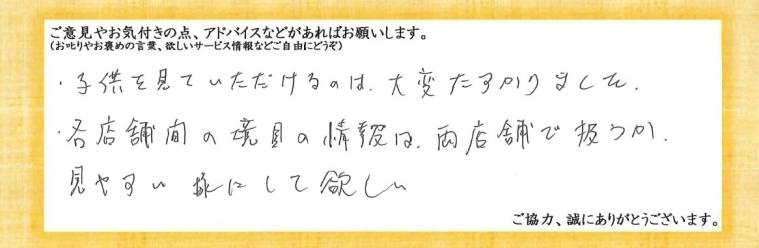 ご意見やお気付きの点、アドバイスなどがあればお願いします。
(お叱りやお褒めの言葉、欲しいサービス情報などご自由にどうぞ)
・子供を見ていただけるのは、大変たすかりました。
・各店舗間の境目の情報は、両店舗で扱うか、
見やすい様にして欲しい
ご協力、誠にありがとうございます。